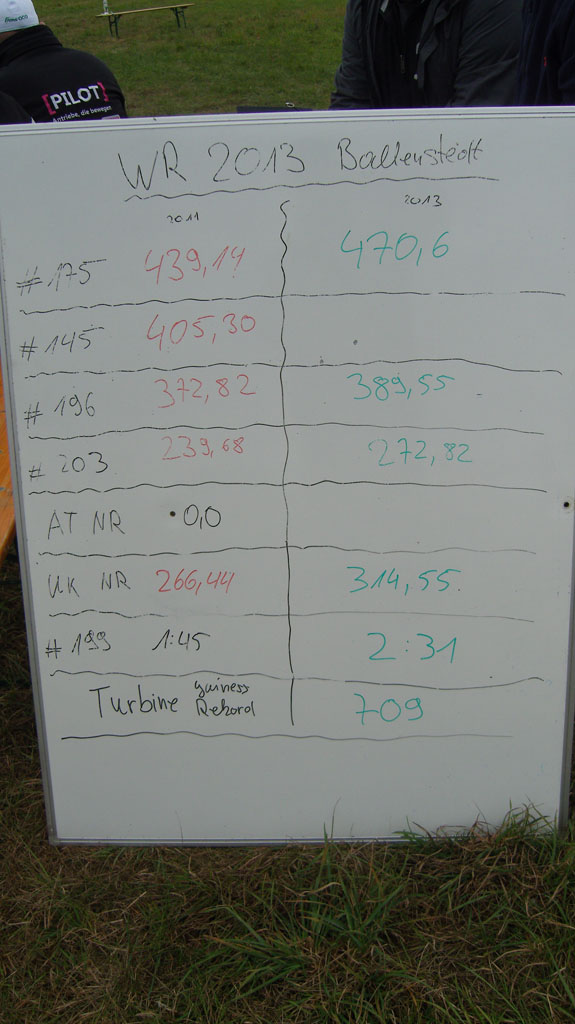 [PILOT]
Antriebe, die bewegen
WR 2013 Ballenstedt
2011 2013
#175 439,14 470,6
#145 405,30
#196 372,82 389,55
#203 239,68 272,82
AT NR 0,0
UK NR 266,44 314,55
#199 1:45 2:31
Turbine Guiness Rekord 709